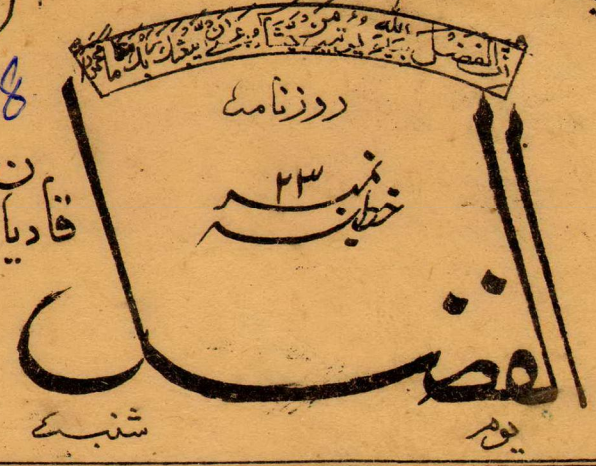 ان الفضل بید اللہ یؤتیہ من یشاء عسیٰ ان یبعثک ربک مقاما محمودا
روزنامہ
خطبہ نمبر ۲۳
الفضل
قادیا
یوم شنبہ
8